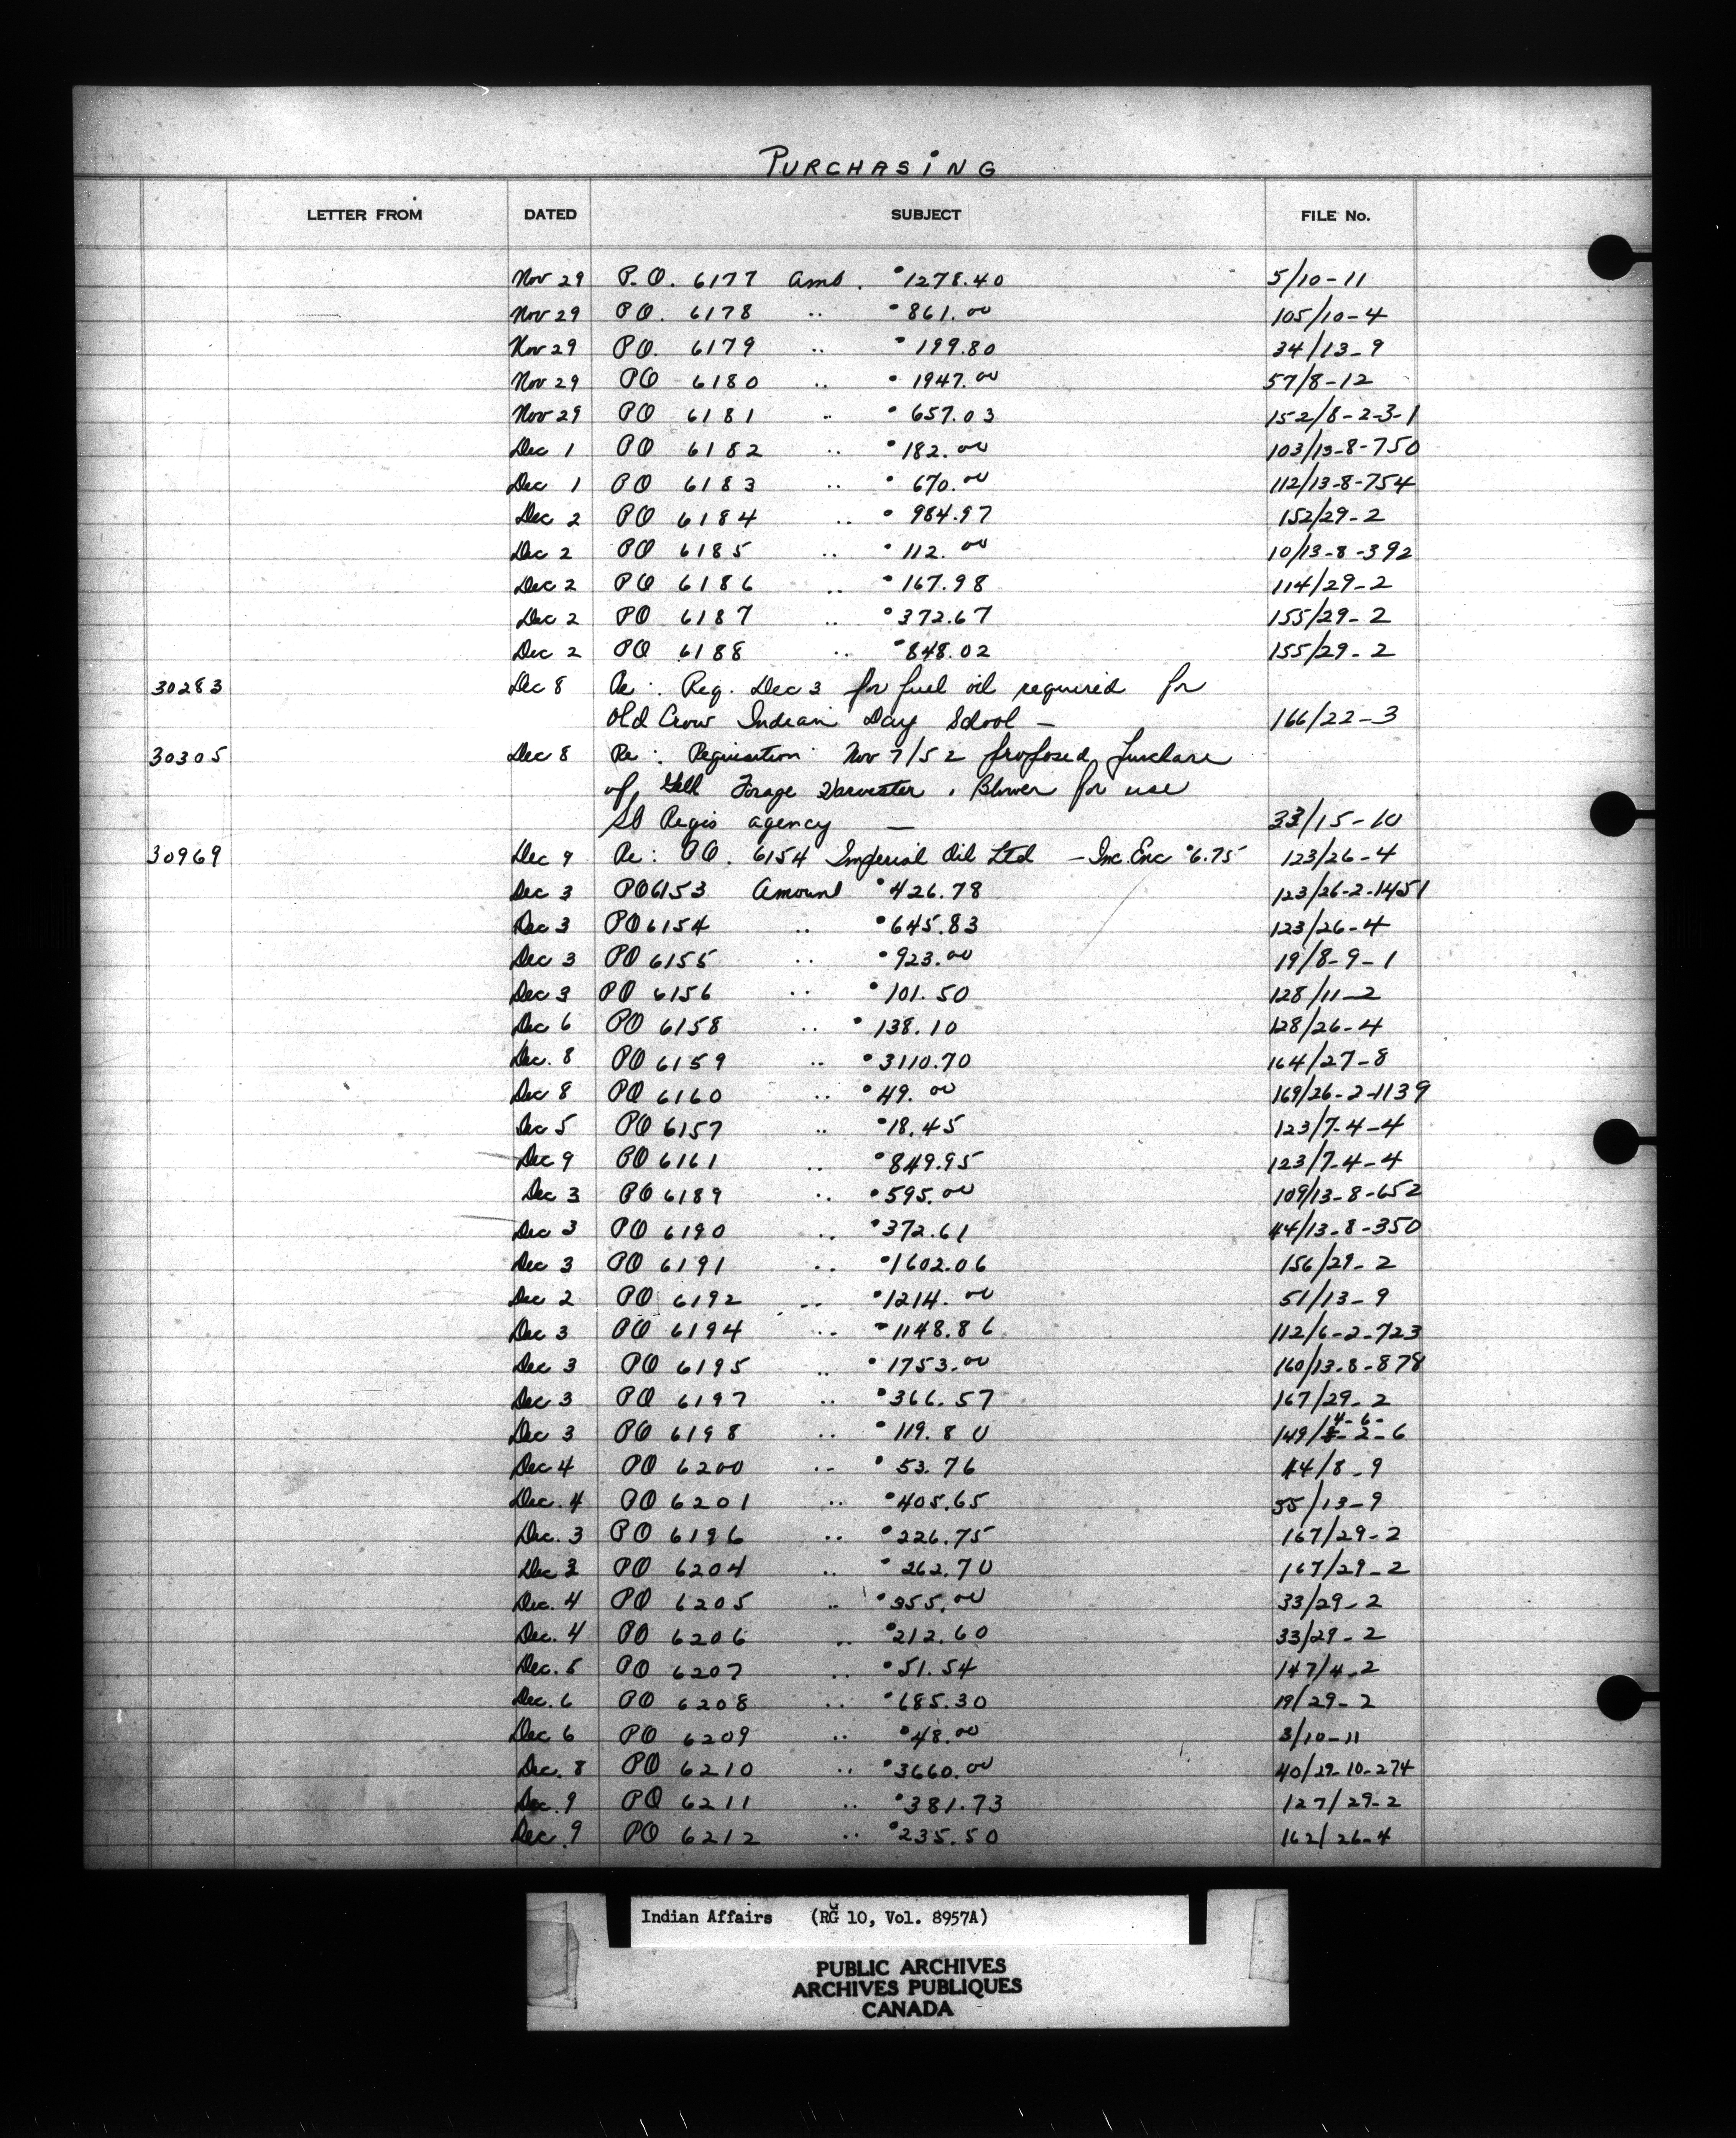 PURCHASING
LETTER FROM DATED SUBJECT FILE No.
Nov 29 P.O. 6177 Amt. 1278.40 5/10-11
Nov 29 PO. 6178 " 861.00 105/10-4
Nov 29 PO. 6179 " 199.80 34/13-9
Nov 29 PO 6180 " 1947.00 57/8-12
Nov 29 PO 6181 " 657.03 152/8-2-3-1
Dec 1 PO 6182 " 182.00 103/13-8-750
Dec 1 PO 6183 " 670.00 112/13-8-754
Dec 2 PO 6184 " 984.97 152/29-2
Dec 2 PO 6185 " 112.00 10/13-8-392
Dec 2 PO 6186 " 167.98 114/29-2
Dec 2 PO 6187 " 372.67 155/29-2
Dec 2 PO 6188 " 848.02 155/29-2
30283 Dec 8 Re: Req. Dec 3 for fuel oil required for
Old Crow Indian Day School - 166/22-3
30305 Dec 8 Re: Requisition Nov 7/52 proposed purchase
of Forage Harvester, Blower for use
St Regis agency - 33/15-10
30969 Dec 9 Re: PO. 6154 Imperial Oil Ltd - Inc. Enc 6.75 123/26-4
Dec 3 PO 6153 Amount 426.78 123/26-2-1451
Dec 3 PO 6154 " 645.83 123/26-4
Dec 3 PO 6155 " 923.00 19/8-9-1
Dec 3 PO 6156 " 101.50 128/11-2
Dec 6 PO 6158 " 138.10 128/26-4
Dec. 8 PO 6159 " 3110.70 164/27-8
Dec 8 PO 6160 " 49.00 169/26-2-1139
Dec 5 PO 6157 " 18.45 123/7-4-4
Dec 9 PO 6161 " 849.95 123/7-4-4
Dec 3 PO 6189 " 595.00 109/13-8-652
Dec 3 PO 6190 " 372.61 44/13-8-350
Dec 3 PO 6191 " 1602.06 156/29-2
Dec 2 PO 6192 " 1214.00 51/13-9
Dec 3 PO 6194 " 1148.86 112/6-2-723
Dec 3 PO 6195 " 1753.00 160/13-8-878
Dec 3 PO 6197 " 366.57 167/29-2
Dec 3 PO 6198 " 119.80 149/4-6-2-6
Dec 4 PO 6200 " 53.76 44/8-9
Dec. 4 PO 6201 " 405.65 55/13-9
Dec. 3 PO 6196 " 226.75 167/29-2
Dec 3 PO 6204 " 262.70 167/29-2
Dec. 4 PO 6205 " 355.00 33/29-2
Dec. 4 PO 6206 " 212.60 33/29-2
Dec. 5 PO 6207 " 51.54 147/4-2
Dec. 6 PO 6208 " 685.30 19/29-2
Dec 6 PO 6209 " 48.00 3/10-11
Dec. 8 PO 6210 " 3660.00 40/29-10-274
Dec. 9 PO 6211 " 381.73 127/29-2
Dec. 9 PO 6212 " 235.50 162/26-4
Indian Affairs (RG 10, Vol. 8957A)
PUBLIC ARCHIVES
ARCHIVES PUBLIQUES
CANADA